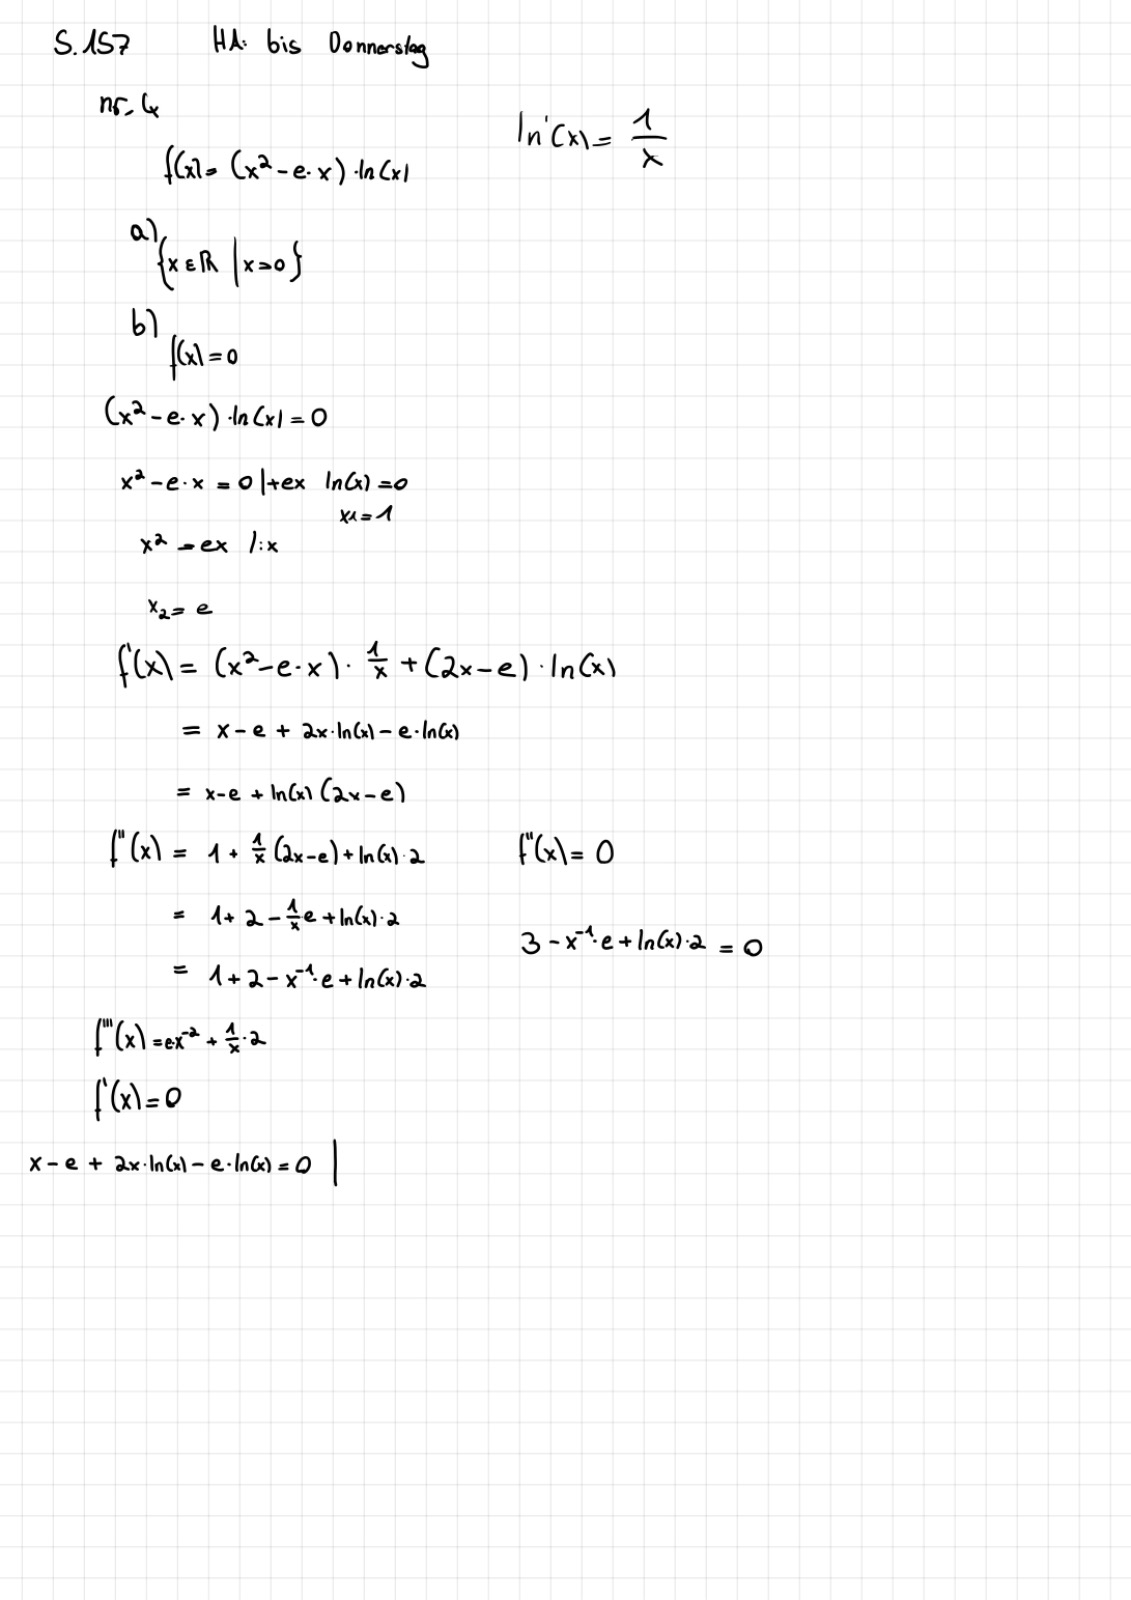 S.157 HA: bis Donnerstag
nr. 4
ln'(x) = 1/x
f(x) = (x² - e·x) · ln(x)
a)
{x ∈ ℝ | x>0}
b)
f(x) = 0
(x² - e·x) · ln(x) = 0
x² - e·x = 0 |+ex ln(x) = 0
x₁ = 1
x² = ex /:x
x₂ = e
f'(x) = (x² - e·x) · 1/x + (2x - e) · ln(x)
= x - e + 2x·ln(x) - e·ln(x)
= x - e + ln(x) (2x - e)
f''(x) = 1 + 1/x (2x - e) + ln(x)·2
= 1 + 2 - 1/x e + ln(x)·2
= 1 + 2 - x⁻¹·e + ln(x)·2
f''(x) = 0
3 - x⁻¹·e + ln(x)·2 = 0
f'''(x) = ex⁻² + 1/x·2
f'(x) = 0
x - e + 2x·ln(x) - e·ln(x) = 0 |